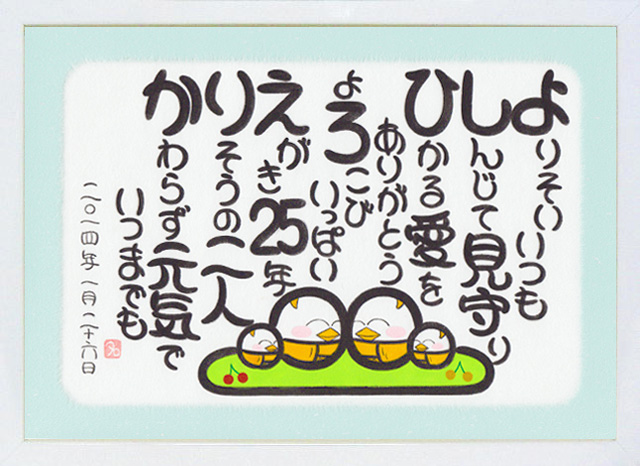 よりそいいつも
しんじて見守り
ひかる愛を
ありがとう
よろこび
いっぱい
えがき25年
りそうの二人
かわらず元気で
いつまでも
二〇一四年 一月二十六日